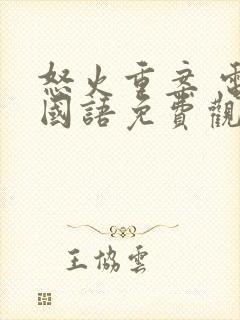 怒火重案 電
國語免費觀
王協雲